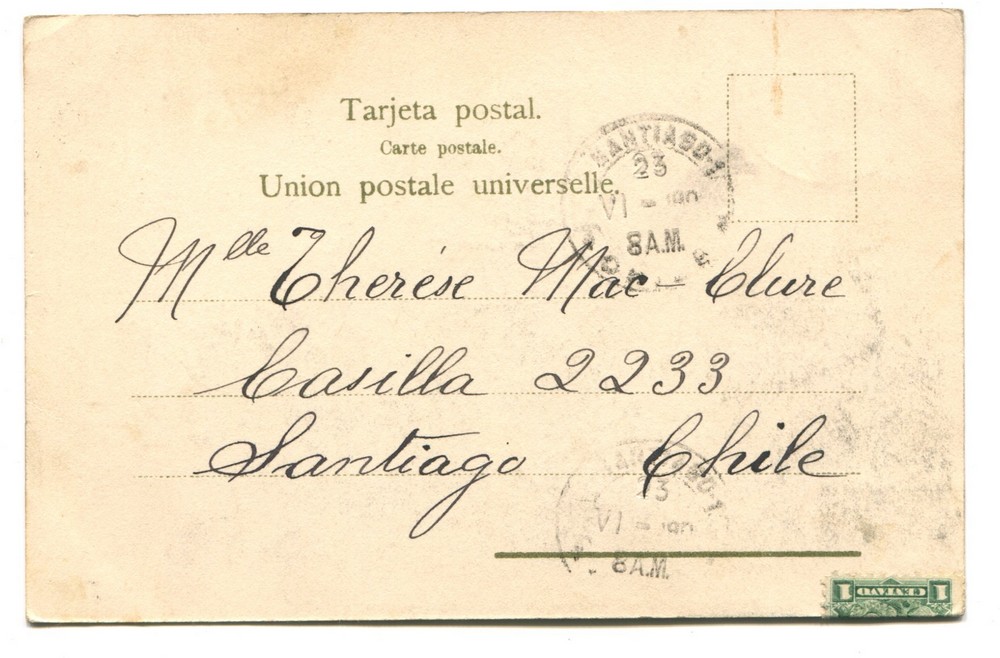 Tarjeta postal.
Carte postale.
Union postale universelle.
SANTIAGO-1
23
VI
8 A.M.
Mlle Therése Mac-Clure
Casilla 2233
Santiago Chile
23
VI
8 A.M.
1 CENTAVO 1